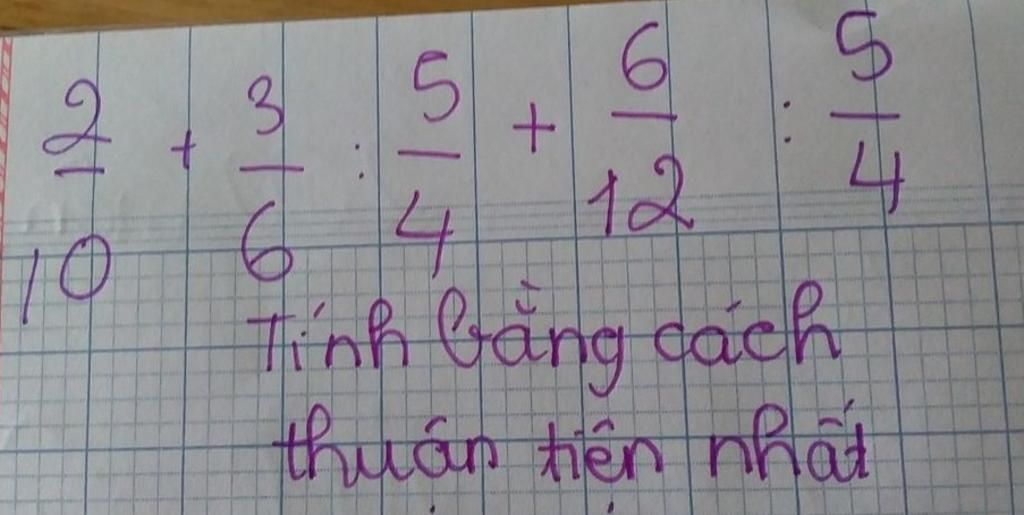 2/10 + 3/6 : 5/4 + 6/12 : 5/4
Tính bằng cách
thuận tiện nhất